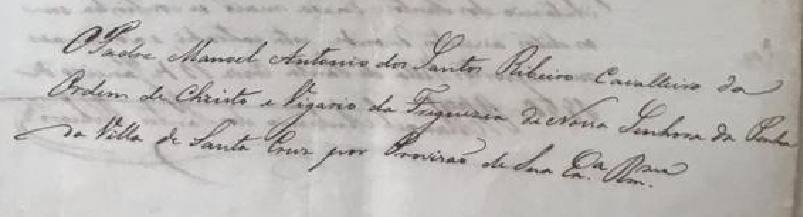 O Padre Manoel Antonio dos Santos Ribeiro Cavalleiro da
Ordem de Christo e Vigario da Freguezia de Nossa Senhora da Penha
da Villa de Santa Cruz por Provisão de Sua Exa. Rma.